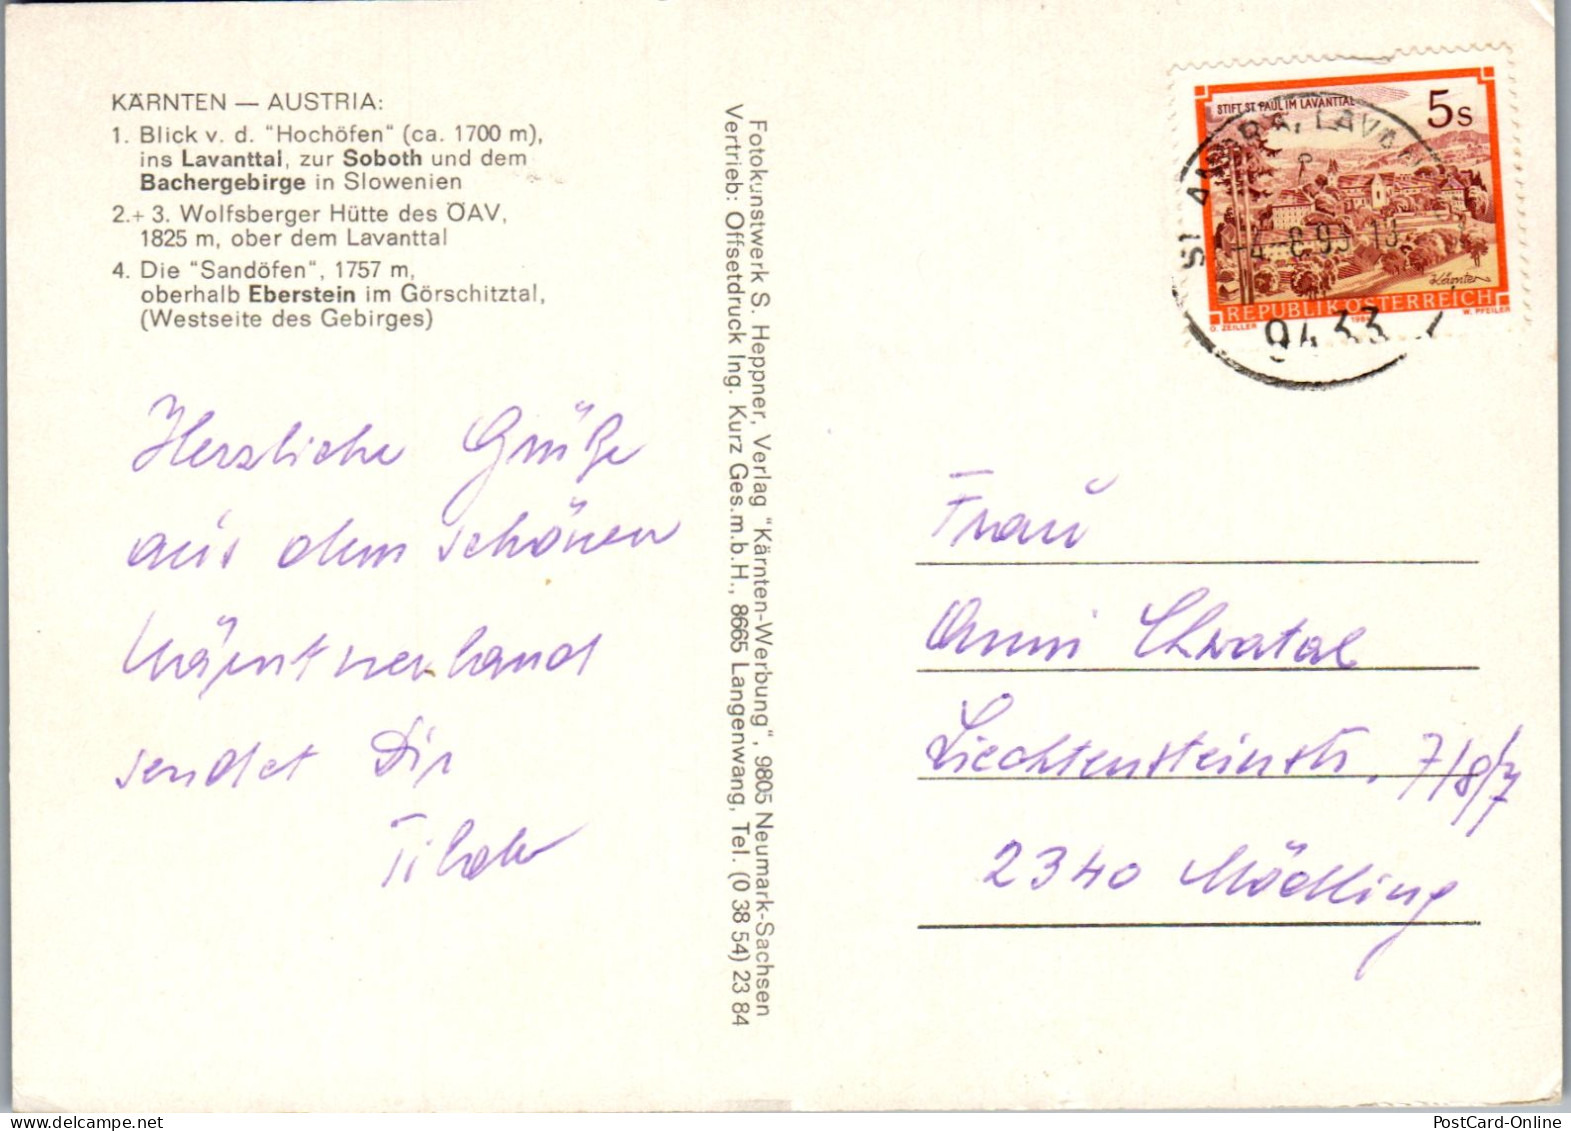 KÄRNTEN — AUSTRIA:
1. Blick v. d. "Hochöfen" (ca. 1700 m),
ins Lavanttal, zur Soboth und dem
Bachergebirge in Slowenien
2.+ 3. Wolfsberger Hütte des ÖAV,
1825 m, ober dem Lavanttal
4. Die "Sandöfen", 1757 m,
oberhalb Eberstein im Görschitztal,
(Westseite des Gebirges)
Herzliche Grüße
aus dem schönen
Kärntnerland
sendet Dir
Tilde
Fotokunstwerk S. Heppner, Verlag "Kärnten-Werbung", 9805 Neumark-Sachsen
Vertrieb: Offsetdruck Ing. Kurz Ges.m.b.H., 8665 Langenwang, Tel. (0 38 54) 23 84
STIFT ST. PAUL IM LAVANTTAL
5s
REPUBLIK ÖSTERREICH
O. ZEILLER
W. PFEILER
Kärnten
9433
Frau
Anni Chwatal
Liechtensteinstr. 7/8/7
2340 Mödling
PostCard-Online